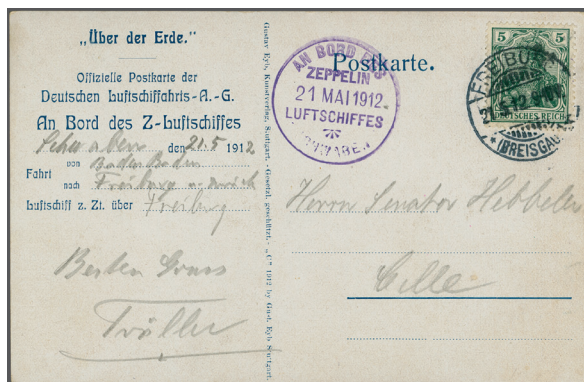 „Über der Erde.“
Offizielle Postkarte der
Deutschen Luftschiffahrts-A.-G.
An Bord des Z-Luftschiffes
Schwaben den 21.5 1912
Fahrt von Baden Baden
nach Freiburg u. zurück
Luftschiff z. Zt. über Freiburg
Besten Gruss
Gustav Eyb, Kunstverlag, Stuttgart. - Gesetzl. geschützt. - „C“ 1912 by Gust. Eyb Stuttgart.
AN BORD DES
ZEPPELIN
21 MAI 1912
LUFTSCHIFFES
SCHWABEN
Postkarte.
5 5
DEUTSCHES REICH
FREIBURG
(BREISGAU)
Herrn Senator
Celle